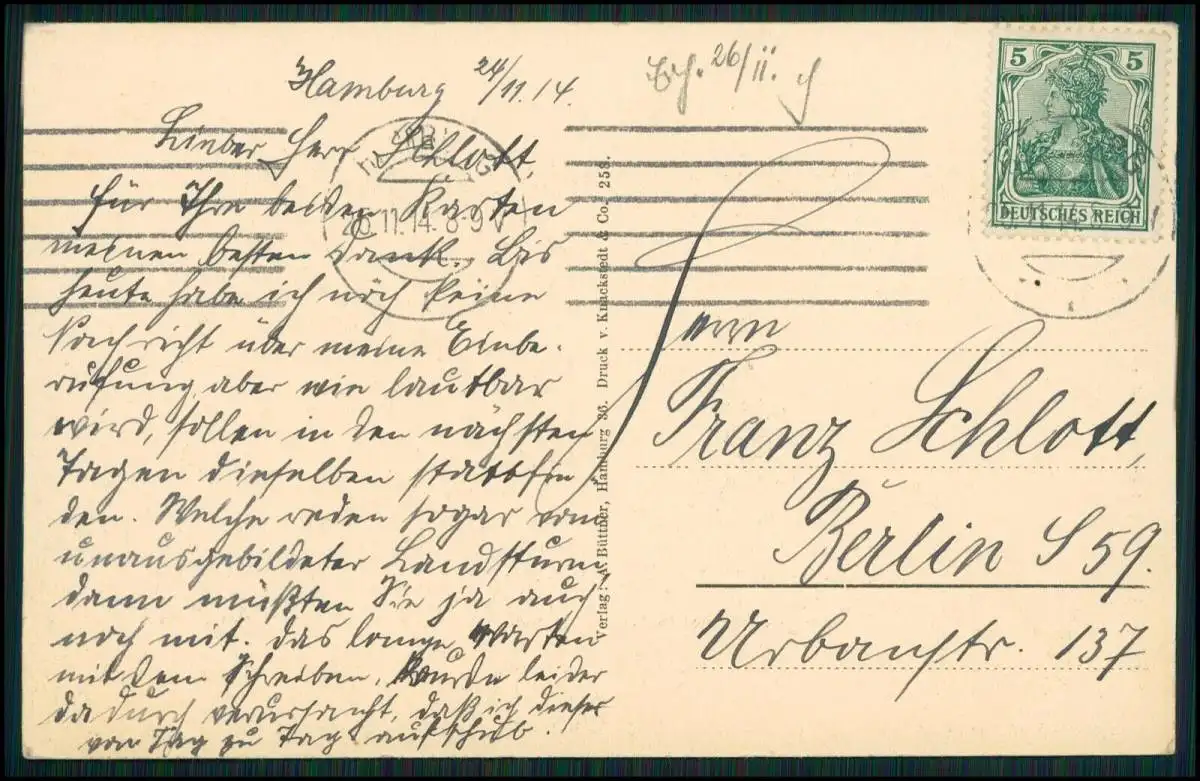 Hamburg 24/11.14.
Lieber Herr Schlott,
für Ihre beiden Karten
meinen besten Dank. Bis
heute habe ich noch keine
Nachricht über meine Einbe-
rufung, aber wie lautbar
wird, sollen in den nächsten
Tagen dieselben stattfin
den. Welche reden sogar vom
unausgebildeter Landsturm,
dann müßten Sie ja auch
noch mit. Das lange Warten
mit dem Schreiben, wurde leider
dadurch verursacht, daß ich dieses
von Tag zu Tag aufschub.
Verlag: A. Büttner, Hamburg 36. Druck v. Knackstedt & Co. 258.
26/II.
25.11.14. 8-9 V
5 5
DEUTSCHES REICH
Herrn
Franz Schlott,
Berlin S 59.
Urbanstr. 137